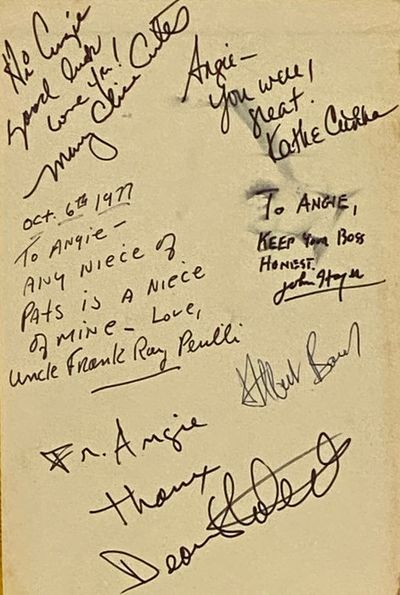 Hi Angie
good luck
love Ya!
Mary
Angie –
You were
great.
Kathe
Oct. 6th 1977
To Angie –
Any niece of
Pats is a niece
of mine – Love,
Uncle Frank Ray Perilli
To Angie,
Keep your Boss
Honest.
John
Albert
Fr. Angie
Thanx
Dean